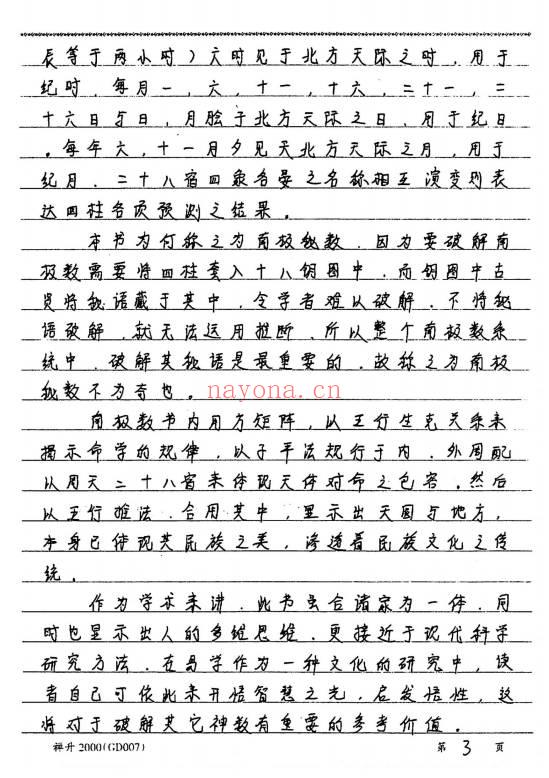 辰等于两小时）六时见于北方天际之时．用于
纪时．每月一，六，十一，十六，二十一，二
十六日与日，月胧于北方天际之日．用于纪日
。每年六，十一月夕见天北方天际之月，用于
纪月．二十八宿四象各晏之名称相互演变则表
达四柱各项预测之结果。
本书为何称之为南极秘数．因为要破解南
极数需要将四柱套入十八钥图中．而钥图中古
贤将秘语藏于其中，令学者难以破解．不将秘
语破解，就无法运用推断．所以整个南极数系
统中．破解其秘语是最重要的．故称之为南极
秘数不为奇也。
nayona.cn
南极数书内用方矩阵，以五行生克关系来
揭示命学的规律，以子平法规行于内．外周配
以周天二十八宿来体现天体对命之包容．然后
以五行推法．合用其中，显示出天圆与地方，
本身已体现其民族之美，渗透着民族文化之传
统。
作为学术来讲．此书虽合诸家为一体．同
时也显示出人的多维思维．更接近于现代科学
研究方法．在易学作为一种文化的研究中，读
者自己可依此来开悟智慧之光，启发悟性，这
将对于破解其它神数有重要的参考价值。
禅升2000(GD007)
第 3 页